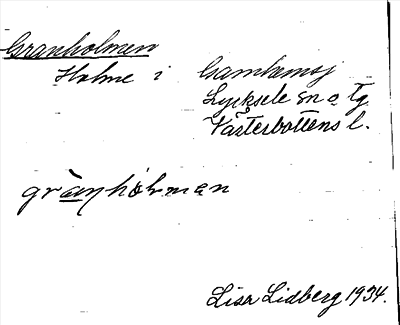 Granholmen
Holme i Gamhemsj
Lycksele sn o tg
Västerbottens l.
grànhòlman
Lisa Lidberg 1934.